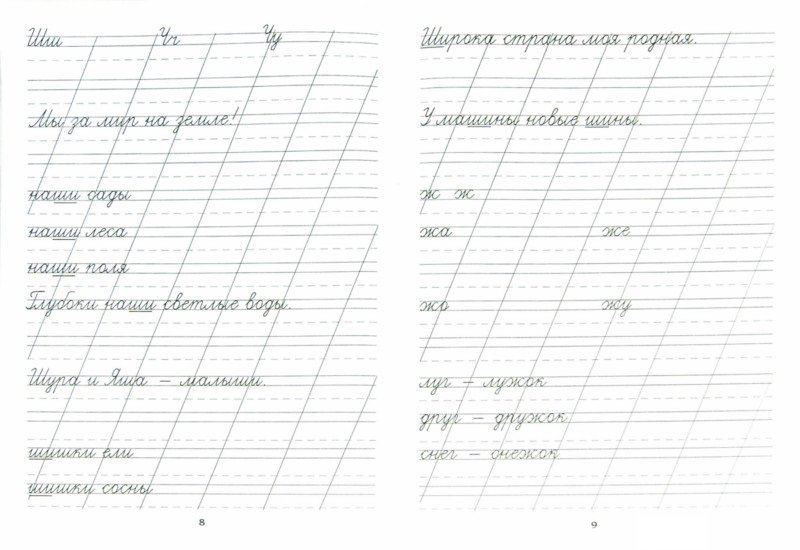 Ши Чч Чу
Мы за мир на земле!
наши сады
наши леса
наши поля
Глубоки наши светлые воды.
Шура и Яша – малыши.
шишки ели
шишки сосны
8
Широка страна моя родная.
У машины новые шины.
ж ж
жа же
жо жу
луг – лужок
друг – дружок
снег – снежок
9